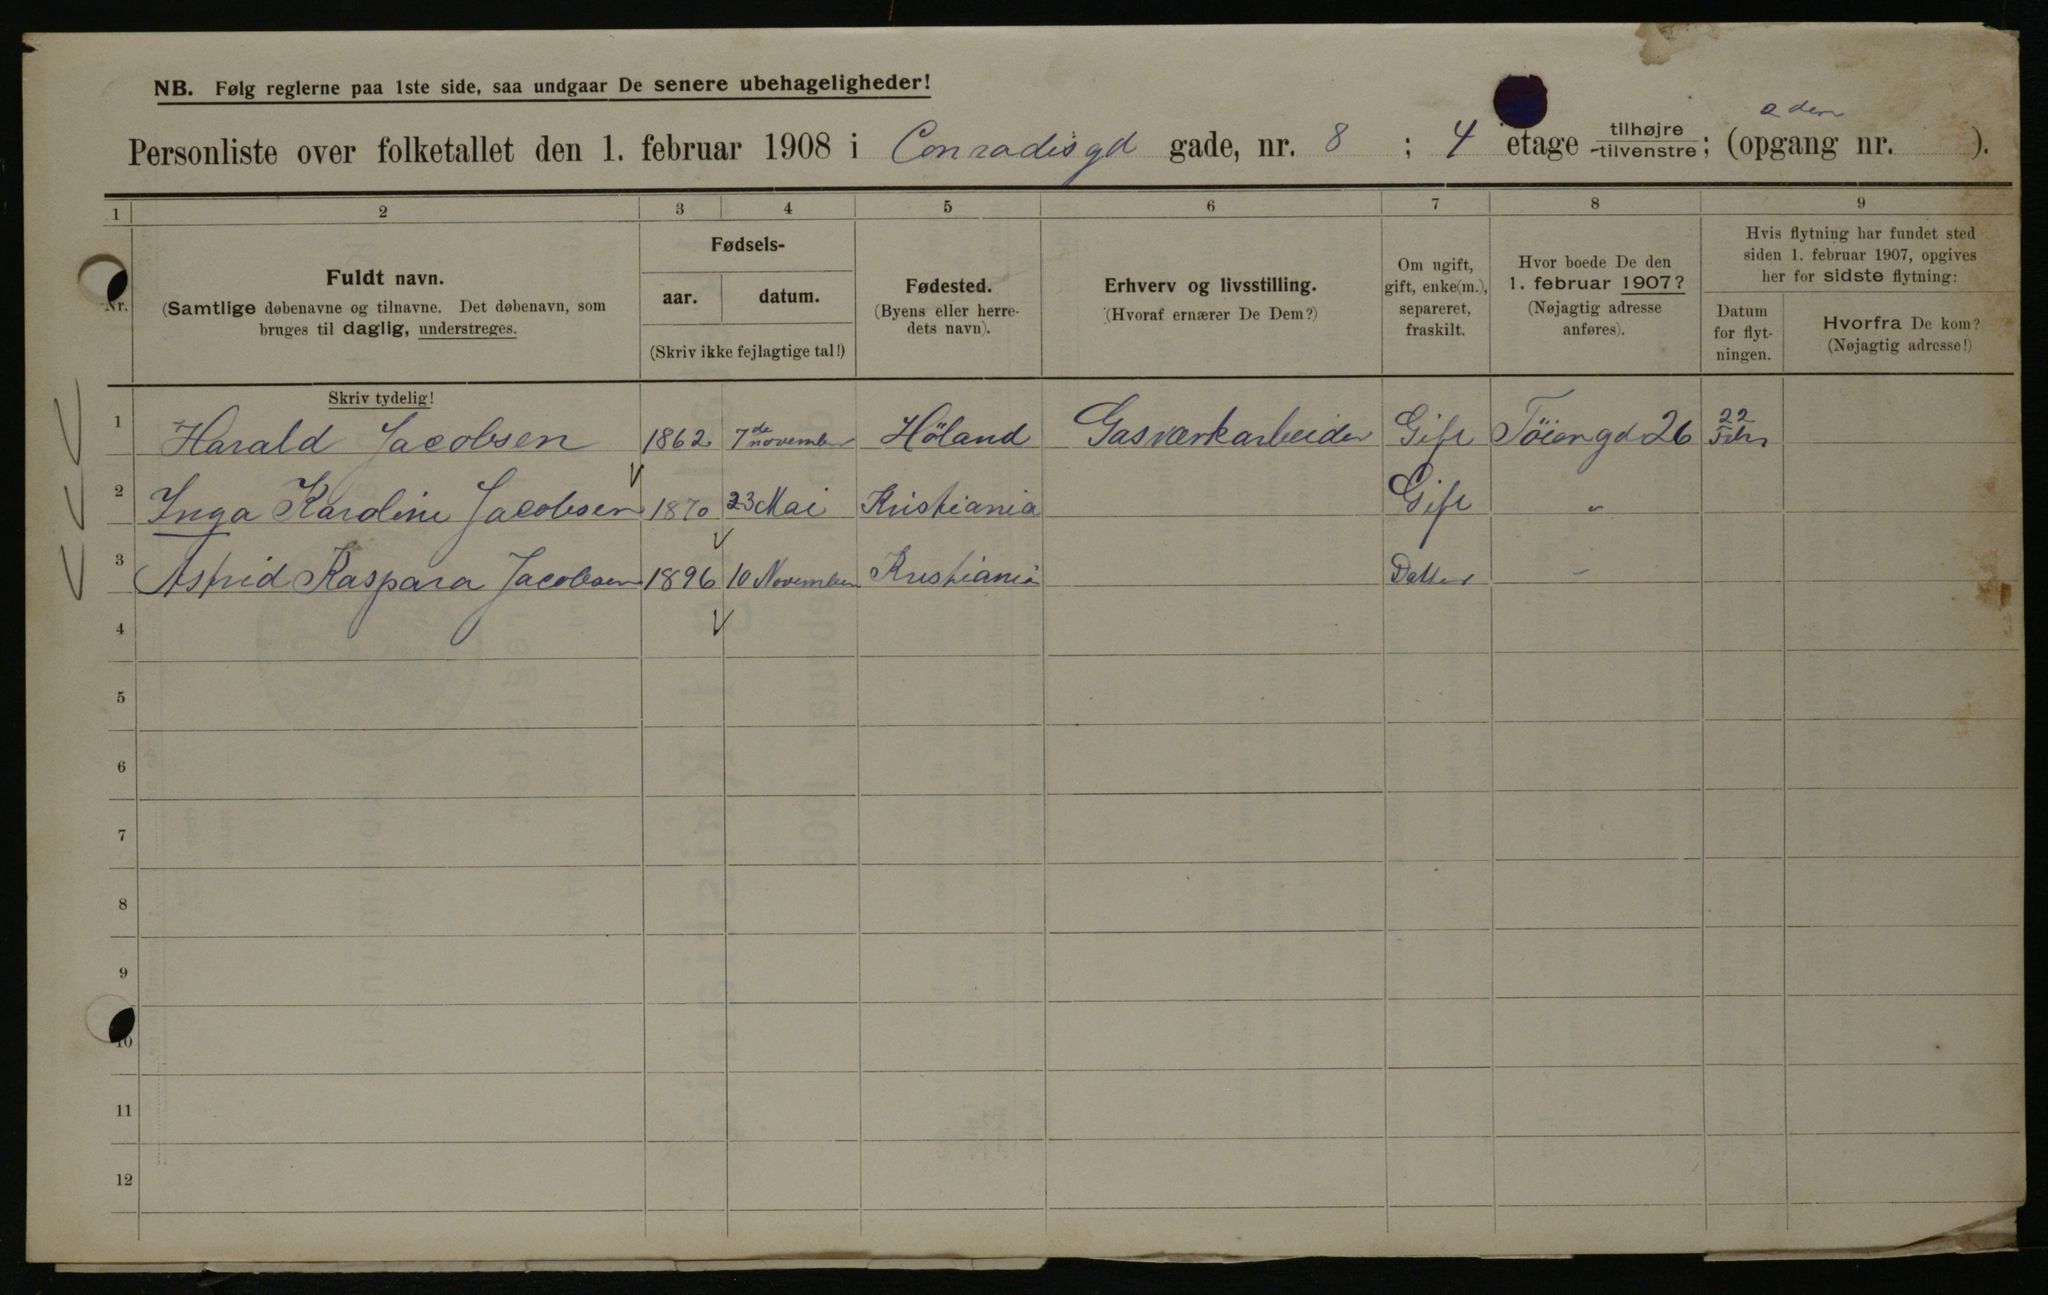 NB. Følg reglerne paa 1ste side, saa undgaar De senere ubehageligheder!
Personliste over folketallet den 1. februar 1908 i Conradisgd gade, nr. 8 ; 4 etage tilhøjre tilvenstre; (opgang nr. ).
1 2 3 4 5 6 7 8 9
Nr.
Fuldt navn.
(Samtlige døbenavne og tilnavne. Det døbenavn, som
bruges til daglig, understreges.
Fødsels-
aar. datum.
(Skriv ikke fejlagtige tal!)
Fødested.
(Byens eller herre-
dets navn).
Erhverv og livsstilling.
(Hvoraf ernærer De Dem?)
Om ugift,
gift, enke(m.),
separeret,
fraskilt.
Hvor boede De den
1. februar 1907?
(Nøjagtig adresse
anføres).
Hvis flytning har fundet sted
siden 1. februar 1907, opgives
her for sidste flytning:
Datum
for flyt-
ningen.
Hvorfra De kom?
(Nøjagtig adresse!)
Skriv tydelig!
1 Harald Jacobsen 1862 7de november Höland Gasværkarbeider Gift Töiengd 26 22 Febr
2 Inga Karoline Jacobsen 1870 23 Mai Kristiania Gift "
3 Astrid Kaspara Jacobsen 1896 10 November Kristiania Datter -
4
5
6
7
8
9
10
11
12